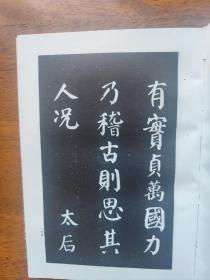 有實貞萬國力
乃稽古則思其
人况 太后